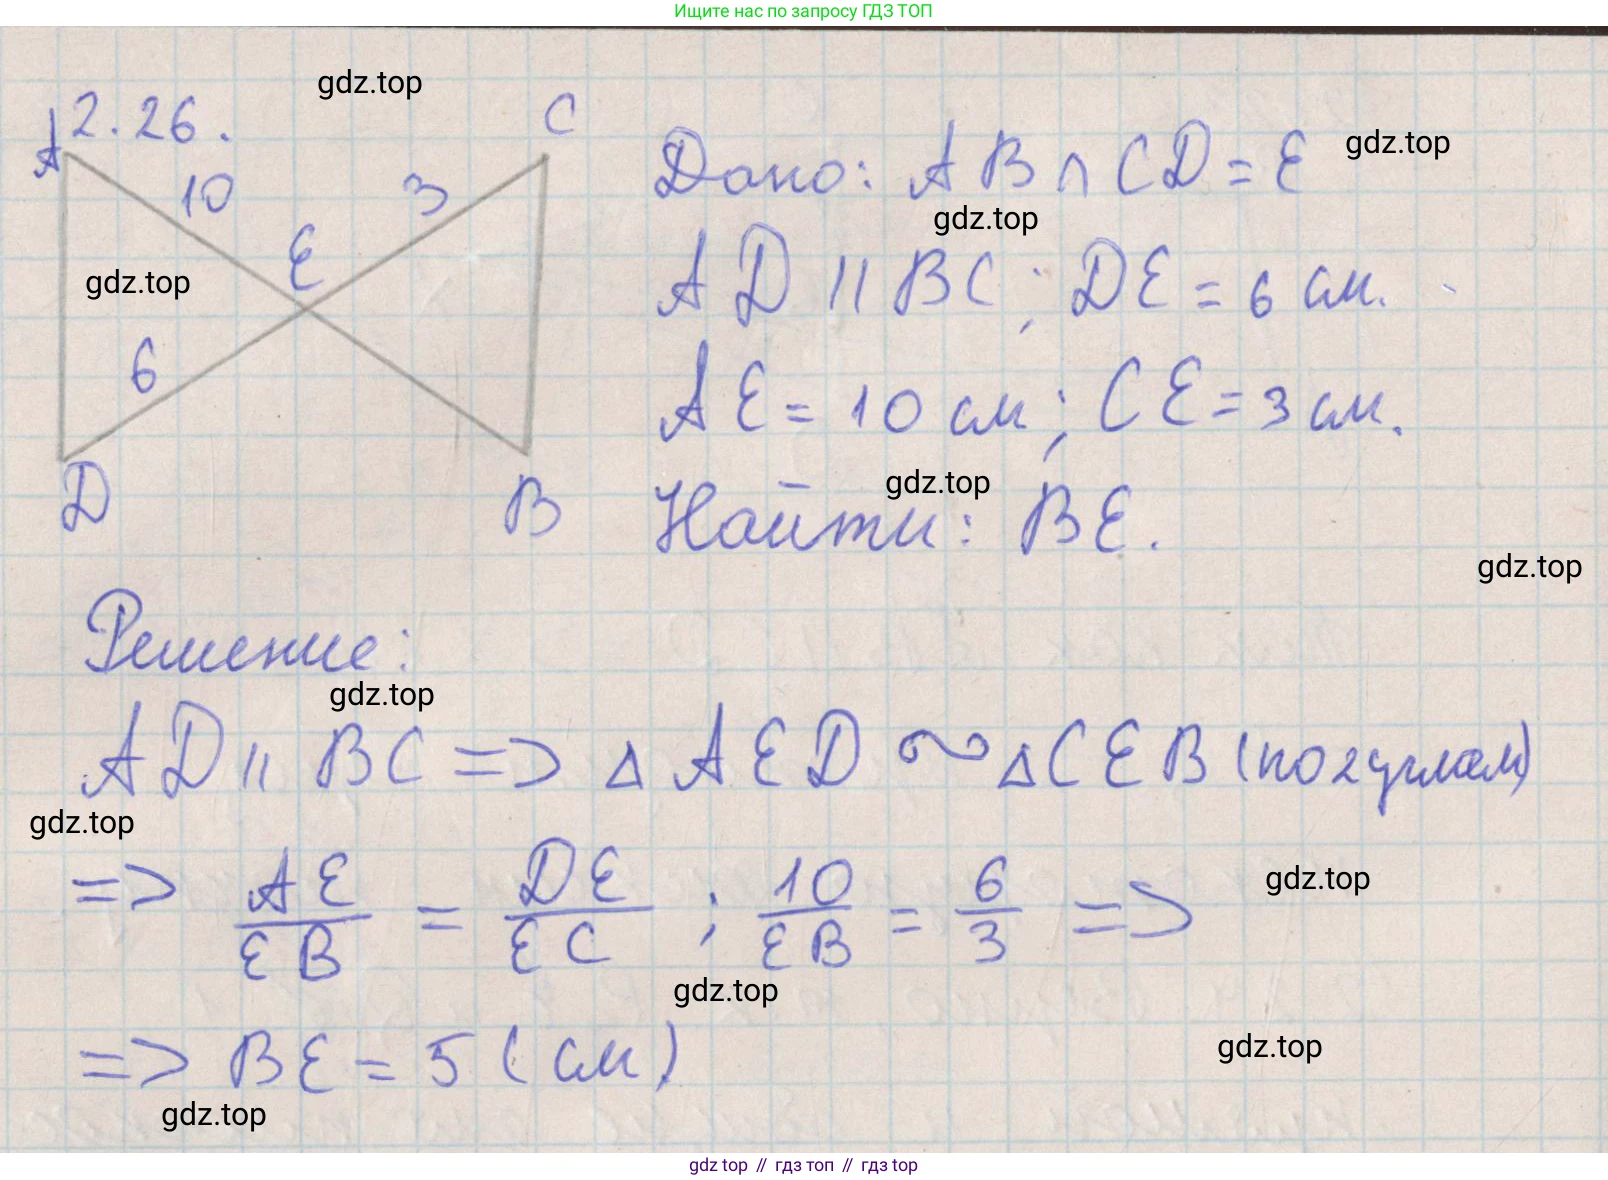 Ищите нас по запросу ГДЗ ТОП
gdz.top
2.26.
A
C
10
3
E
gdz.top
6
D
B
Дано: AB ∩ CD = E
gdz.top
gdz.top
AD || BC; DE = 6 см.
AE = 10 см; CE = 3 см.
gdz.top
Найти: BE.
gdz.top
Решение:
gdz.top
AD || BC => △ AED ∾ △CEB (по 2 углам)
gdz.top
=> AE/EB = DE/EC ; 10/EB = 6/3 =>
gdz.top
gdz.top
=> BE = 5 (см)
gdz.top
gdz.top
gdz top // гдз топ // gdz top